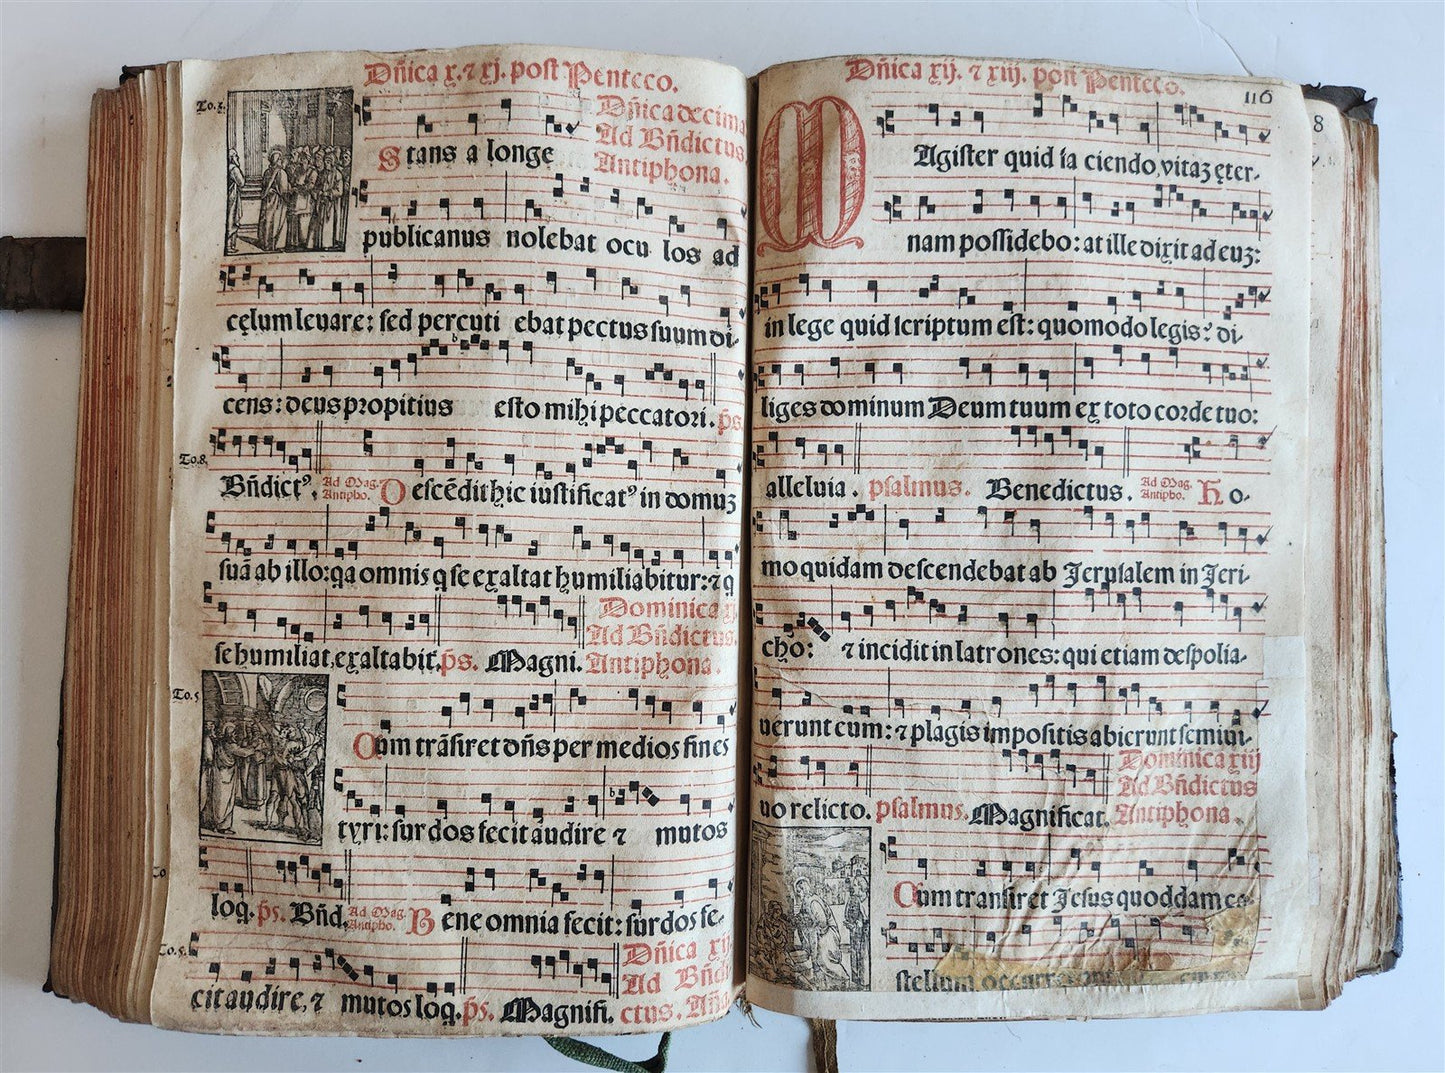 Dñica x. ⁊ xj. post Penteco.
To. 1.
Dñica decima
Ad Bñdictus.
Antiphona.
Stans a longe
publicanus nolebat ocu los ad
cęlum leuare: sed percuti ebat pectus suum di-
cens: deus propitius esto mihi peccatori. p̃s.
To. 8.
Bñdictꝰ. Ad Mag. Antipho. Descẽdit hic iustificatꝰ in domuʒ
suã ab illo: qa omnis q se exaltat humiliabitur: ⁊ q
se humiliat, exaltabit. p̃s. Magni.
Dominica xj.
Ad Bñdictus.
Antiphona.
To. 5
Cum trãsiret dñs per medios fines
tyri: surdos fecit audire ⁊ mutos
loq. p̃s. Bñd. Ad Mag. Antipho. Bene omnia fecit: surdos fe-
To. 5.
cit audire, ⁊ mutos loq. p̃s. Magnifi.
Dñica xij.
Ad Bñdi
ctus. Añ
Dñica xij. ⁊ xiij. post Penteco.
116
8
Magister quid fa ciendo, vitaʒ ęter-
nam possidebo: at ille dixit ad euʒ:
in lege quid scriptum est: quomodo legis? di-
liges dominum Deum tuum ex toto corde tuo:
alleluia. psalmus. Benedictus. Ad Mag. Antipho. Ho-
mo quidam descendebat ab Jerusalem in Jeri-
cho: ⁊ incidit in latrones: qui etiam despolia-
uerunt eum: ⁊ plagis impositis abierunt semiui-
uo relicto. psalmus. Magnificat.
Dominica xiij
Ad Bñdictus
Antiphona.
Cum transiret Jesus quoddam ca-
stellum, occurrerunt